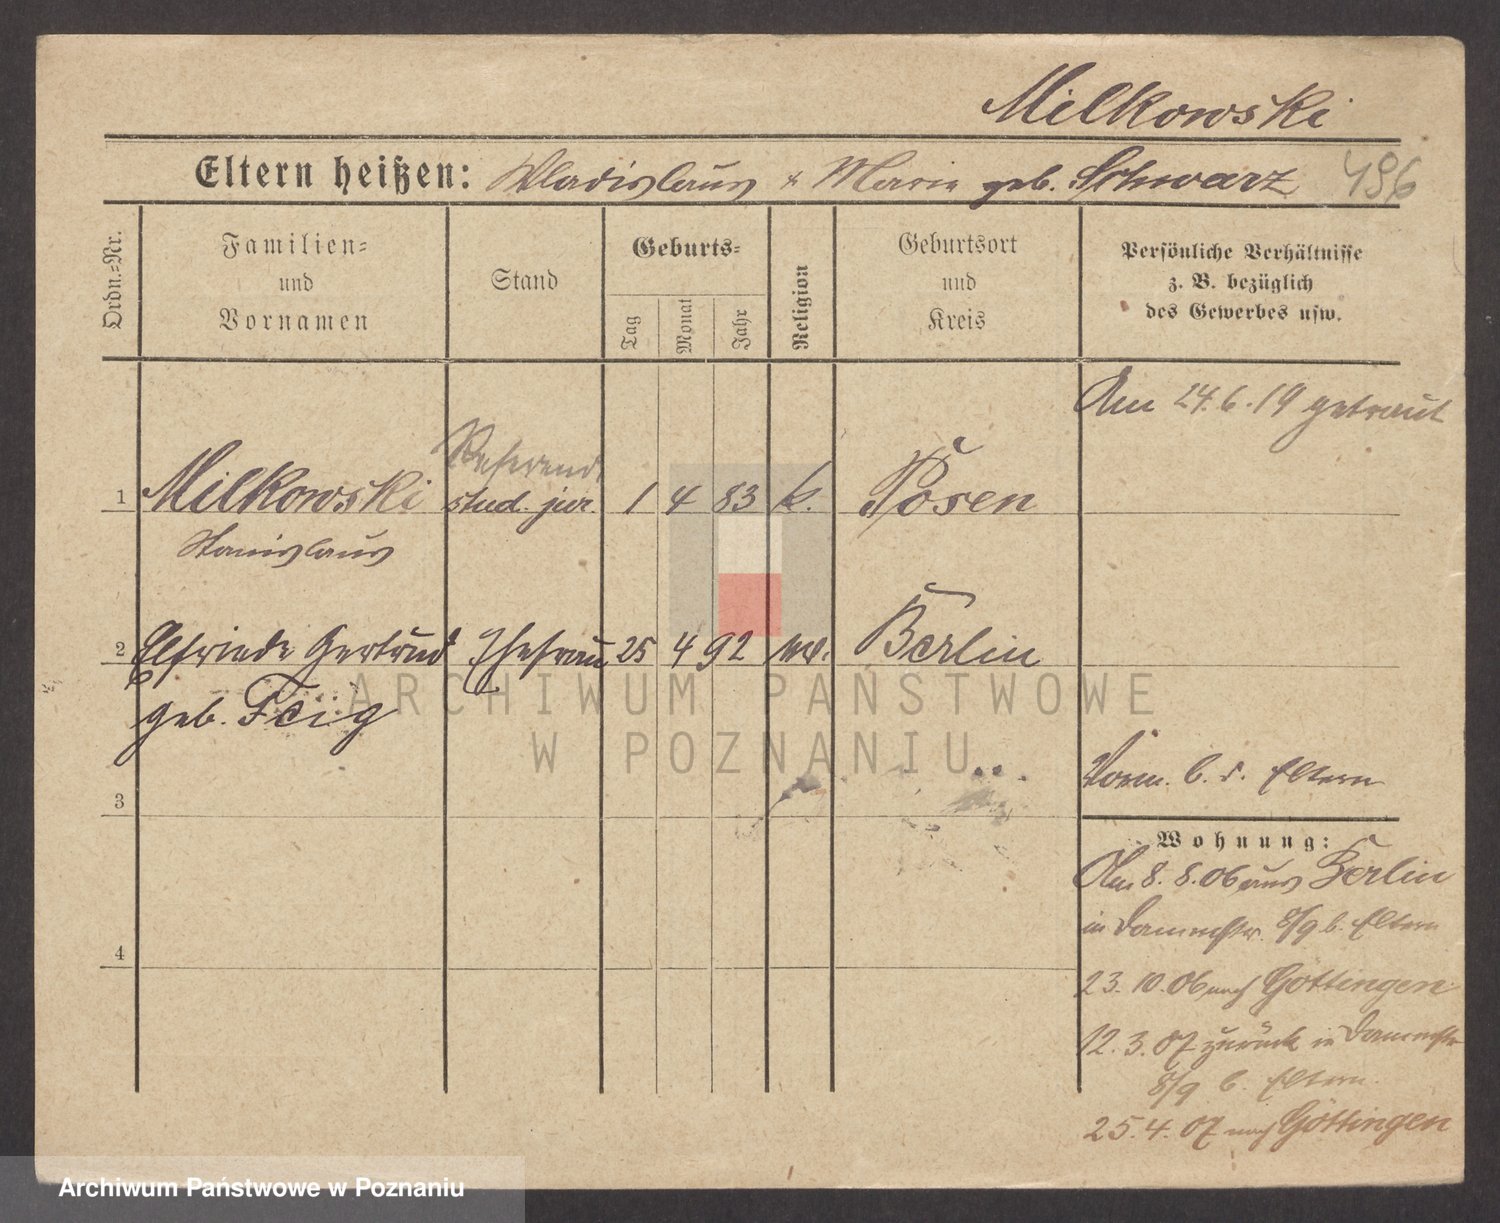 Milkowski
Eltern heißen: Wladislaus & Marie geb. Schwarz 496
Ordn.=Nr.
Familien=
und
Vornamen
Stand
Geburts=
Tag
Monat
Jahr
Religion
Geburtsort
und
Kreis
Persönliche Verhältnisse
z. B. bezüglich
des Gewerbes usw.
Am 24.6.19 getraut
Referend.
1 Milkowski stud. jur. 1 4 83 k. Posen
Stanislaus
2 Elfriede Gertrud Ehefrau 25 4 92 Berlin
geb. Feig
ARCHIWUM PAŃSTWOWE
W POZNANIU
Vorm. b. d. Eltern
3
Wohnung:
Am 8. 8. 06 aus Berlin
in 8/9 b. Eltern
4
23. 10. 06 nach Göttingen
12. 3. 07 zurück in
8/9 b. Eltern.
25. 4. 07 nach Göttingen
Archiwum Państwowe w Poznaniu